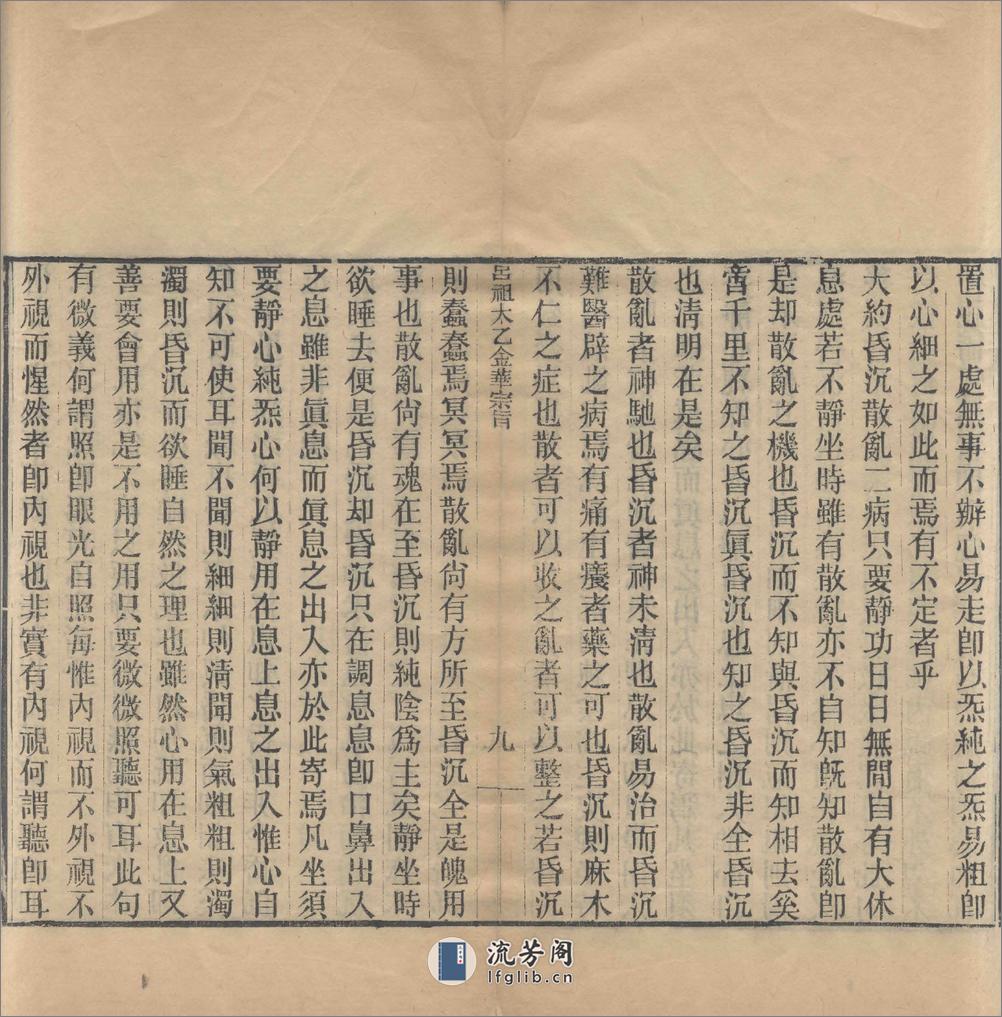 置心一處無事不辦心易走卽以炁純之炁易粗卽
以心細之如此而焉有不定者乎
大約昏沉散亂二病只要靜功日日無間自有大休
息處若不靜坐時雖有散亂亦不自知旣知散亂卽
是却散亂之機也昏沉而不知與昏沉而知相去奚
啻千里不知之昏沉眞昏沉也知之昏沉非全昏沉
也清明在是矣
散亂者神馳也昏沉者神未淸也散亂易治而昏沉
難醫辟之病焉有痛有癢者藥之可也昏沉則麻木
不仁之症也散者可以收之亂者可以整之若昏沉
呂祖太乙金華宗旨 九
則蠢蠢焉冥冥焉散亂尙有方所至昏沉全是魄用
事也散亂尙有魂在至昏沉則純陰爲主矣靜坐時
欲睡去便是昏沉却昏沉只在調息息卽口鼻出入
之息雖非眞息而眞息之出入亦於此寄焉凡坐須
要靜心純炁心何以靜用在息上息之出入惟心自
知不可使耳聞不聞則細細則淸聞則氣粗粗則濁
濁則昏沉而欲睡自然之理也雖然心用在息上又
善要會用亦是不用之用只要微微照聽可耳此句
有微義何謂照卽眼光自照每惟內視而不外視不
外視而惺然者卽內視也非實有內視何謂聽卽耳
流芳阁
lfglib.cn